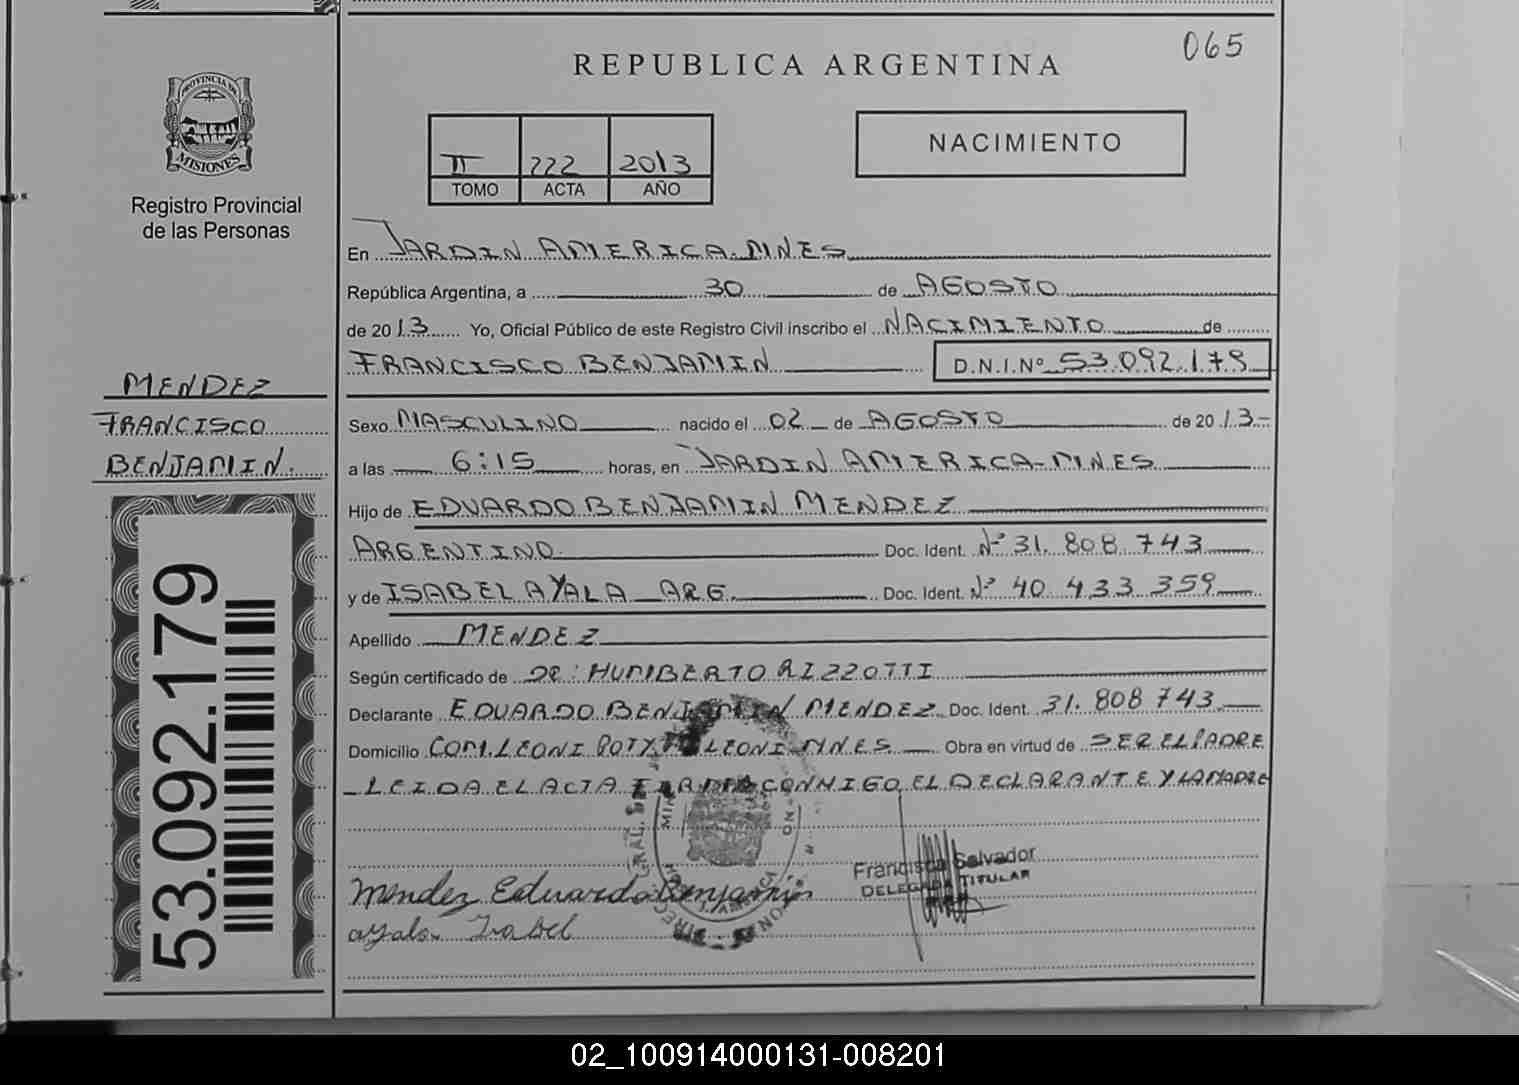 065
REPUBLICA ARGENTINA
PROVINCIA DE
MISIONES
Registro Provincial
de las Personas
II 222 2013
TOMO ACTA AÑO
NACIMIENTO
En JARDIN AMERICA-MNES
República Argentina, a 30 de AGOSTO
de 2013 Yo, Oficial Público de este Registro Civil inscribo el NACIMIENTO de
FRANCISCO BENJAMIN D.N.I.Nº 53.092.179
MENDEZ
FRANCISCO
BENJAMIN.
Sexo MASCULINO nacido el 02 de AGOSTO de 2013-
a las 6:15 horas, en JARDIN AMERICA-MNES
Hijo de EDUARDO BENJAMIN MENDEZ
ARGENTINO Doc. Ident. Nº 31.808 743
y de ISABEL AYALA ARG. Doc. Ident. Nº 40 433 359
Apellido MENDEZ
Según certificado de DR: HUMBERTO RIZZOTTI
Declarante EDUARDO BENJAMIN MENDEZ Doc. Ident. 31.808 743
Domicilio COM. LEONI POTY LEONI-MNES Obra en virtud de SER EL PADRE
LEIDA EL ACTA FIRMA CONMIGO EL DECLARANTE Y LA MADRE
Francisca Salvador
DELEGADA TITULAR
Mendez Eduardo Benjamin
ayala Isabel
53.092.179
02_100914000131-008201